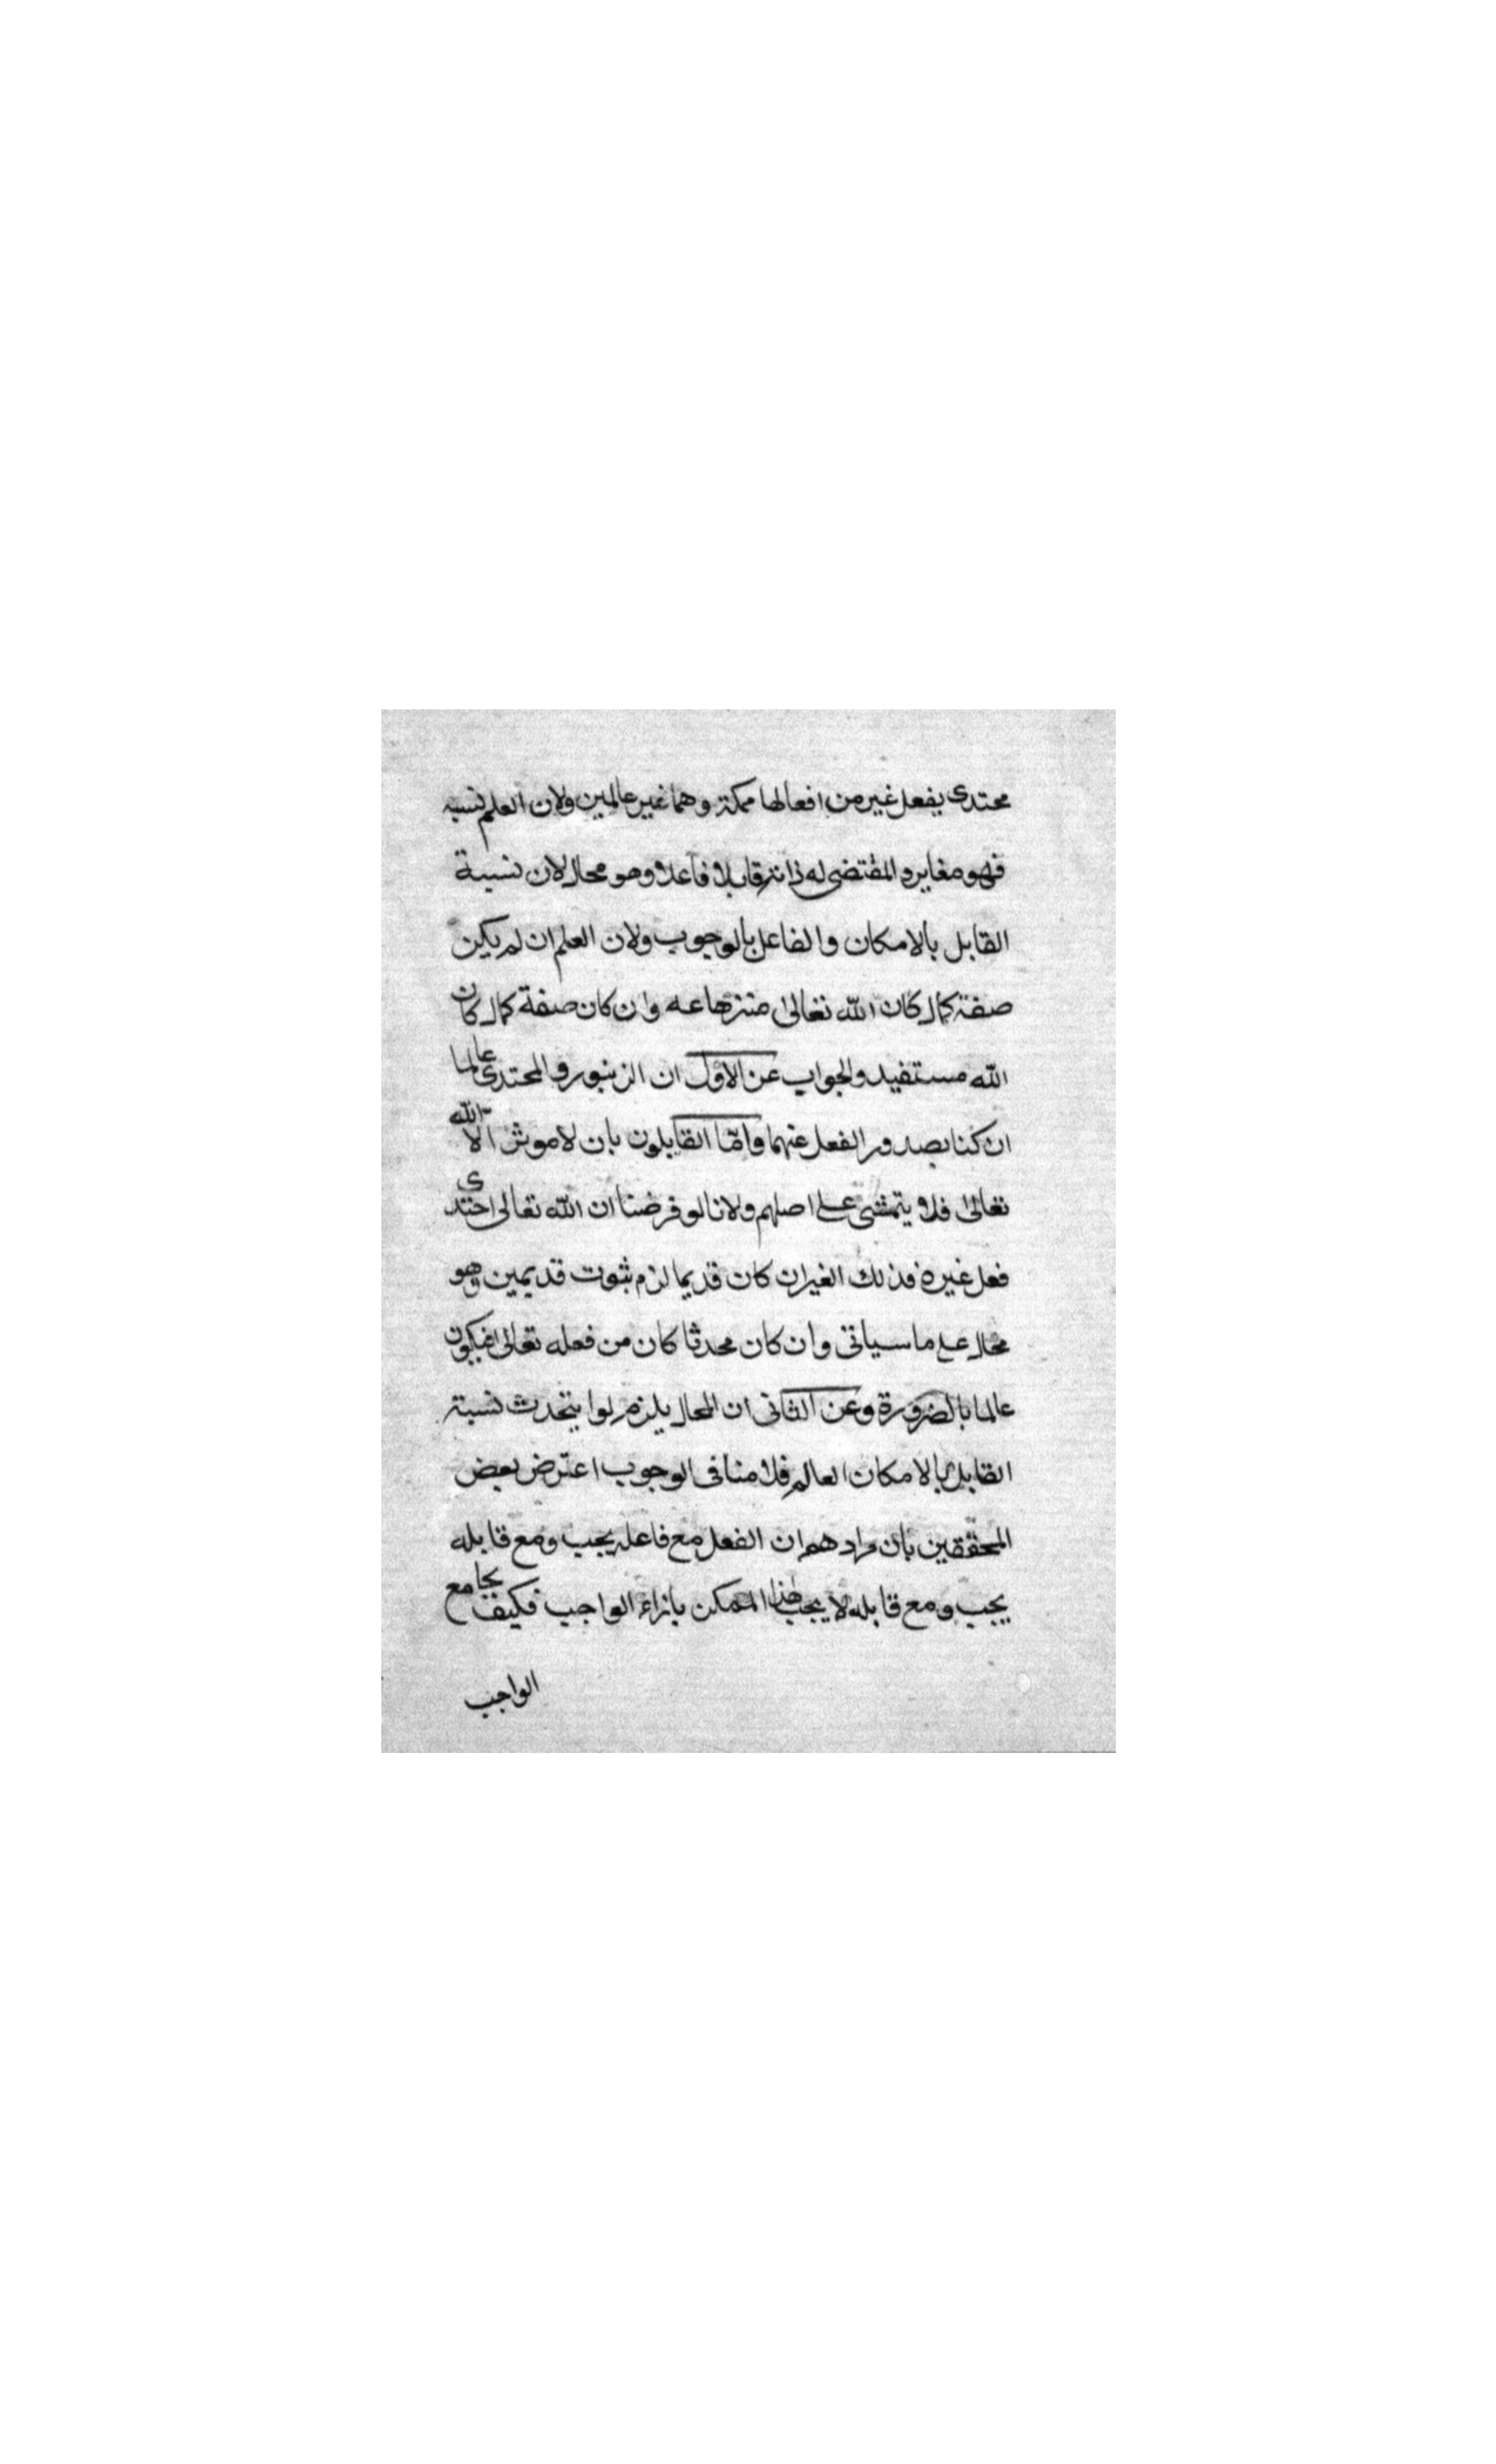 محتدى يفعل غير من افعالها ممكنة وهما غير عالمين ولان العلم نسبه
فهو مغاير والمقتضى له ذاته قابلا فاعلا وهو محال لان نسبة
القابل بالامكان والفاعل بالوجوب ولان العلم ان لم يكن
صفة كمال كان الله تعالى متنزها عنه وان كان صفة كمال كان
الله مستفيد والجواب عن الاول ان الزنبور والمحتدى عالما
ان كنا بصدور الفعل عنهما وامّا القايلون بان لا موثر الا الله
تعالى فلا يتمشى على اصلهم ولانا لو فرضنا ان الله تعالى احتدى
فعل غيره فذلك الغير ان كان قديما لزم ثبوت قديمين وهو
محال على ما سياتى وان كان محدثا كان من فعله تعالى فيكون
عالما بالضرورة وعن الثانى ان المحال يلزم لو اتحدت نسبة
القابل بالامكان العالم فلا منافى الوجوب اعترض بعض
المحققين بان مرادهم ان الفعل مع فاعله يجب ومع قابله
يجب ومع قابله لا يجب هذا الممكن بازاء الواجب فكيف يجامع
الواجب